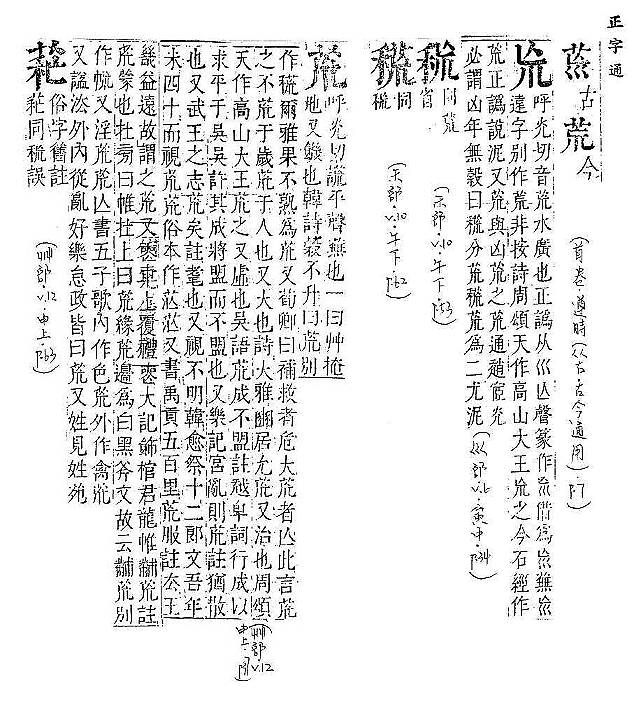 正字通
古荒今
(首卷・遵時(从古古今適用)・p.7)
巟 呼光切音荒水廣也正譌从巛亾聲篆作巟借爲巟蕪巟
遠字別作荒非按詩周頌天作高山大王巟之今石經作
荒正譌說泥又荒與凶荒之荒通趙宧光
必謂凶年無穀曰𥡃分荒𥡃荒爲二尤泥
(巛部・v.6・寅中・p.34)
同荒
省
(禾部・v.10・午下・p.53)
𥡃 同
(禾部・v.10・午下・p.62)
荒 呼光切謊平聲蕪也一曰艸掩
地又饑也韓詩穀不升曰荒別
作𥡃爾雅果不熟爲荒又荀卿曰補敚者危大荒者亾此言荒
之不荒于歲荒于人也又大也詩大雅豳居允荒又治也周頌
天作高山大王荒之又虛也吳語荒成不盟註越卑詞行成以
求平于吳吳許其成將盟而不盟也又樂記宮亂則荒註猶散
也又武王之志荒矣註耄也又視不明韓愈祭十二郎文吾年
未四十而視荒荒俗本作茫茫又書禹貢五百里荒服註去王
畿益遠故謂之荒又覆禮喪大記飾棺君龍帷黼荒註
荒蒙也杜旁曰帷柱上曰荒緣荒邊爲白黑斧文故云黼荒別
作㡃又淫荒荒亾書五子歌內作色荒外作禽荒
又謚法外內從亂好樂怠政皆曰荒又姓見姓苑
(艸部・v.12・申上・p.)
俗字舊註
同𥡃誤
(艸部・v.12・申上・p.63)